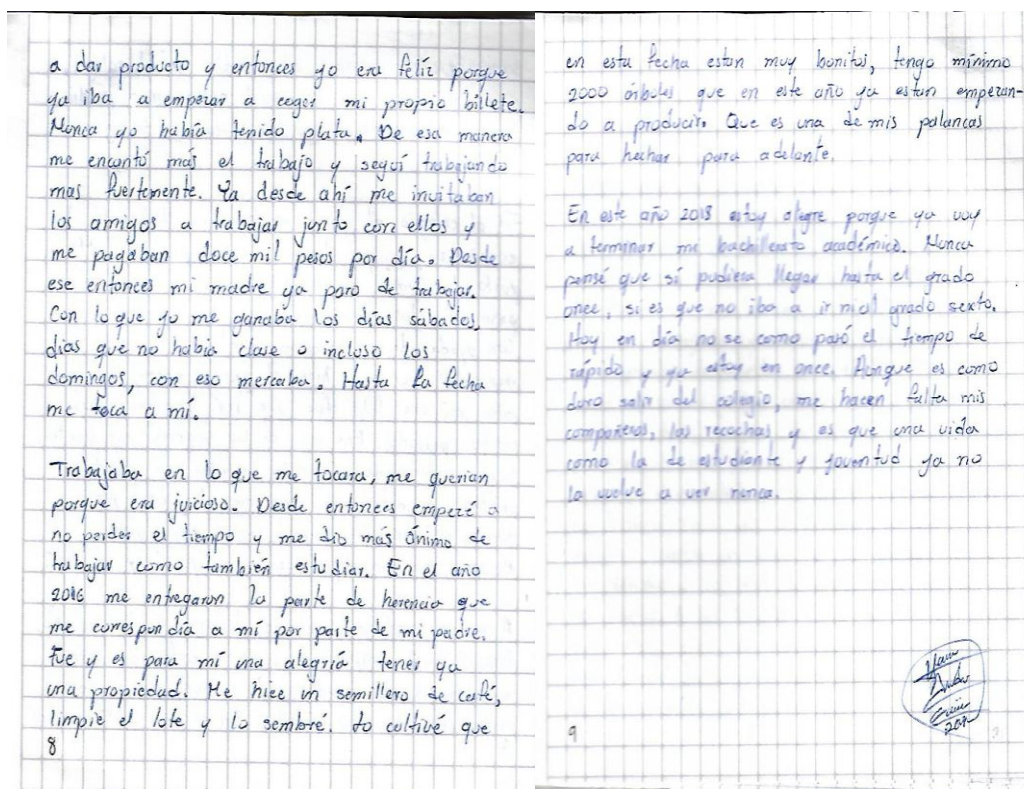 a dar producto y entonces yo era feliz porque
ya iba a emperar a coger mi propio billete.
Nunca yo había tenido plata. De esa manera
me encantó más el trabajo y seguí trabajando
mas fuertemente. Ya desde ahí me invitaban
los amigos a trabajar junto con ellos y
me pagaban doce mil pesos por día. Desde
ese entonces mi madre ya paro de trabajar.
Con lo que yo me ganaba los días sábados,
días que no había clase o incluso los
domingos, con eso mercaba. Hasta la fecha
me toca a mí.
Trabajaba en lo que me tocara, me querian
porque era juicioso. Desde entonces emperé a
no perder el tiempo y me dio más ánimo de
trabajar como también estudiar. En el año
2016 me entregaron la parte de herencia que
me correspondía a mí por parte de mi padre.
Fue y es para mí una alegría tener ya
una propiedad. Me hice un semillero de café,
limpie el lote y lo sembré. Lo cultivé que
8
en esta fecha estan muy bonitos, tengo mínimo
2000 árboles que en este año ya estan emperan-
do a producir. Que es una de mis palancas
para hechar para adelante.
En este año 2018 estoy alegre porque ya voy
a terminar mi bachillerato académico. Nunca
pensé que sí pudiera llegar hasta el grado
once, si es que no iba a ir ni al grado sexto.
Hoy en día no se como pasó el tiempo de
rápido y ya estoy en once. Aunque es como
duro salir del colegio, me hacen falta mis
compañeros, las recochas y es que una vida
como la de estudiante y joventud ya no
la vuelve a ver nunca.
9